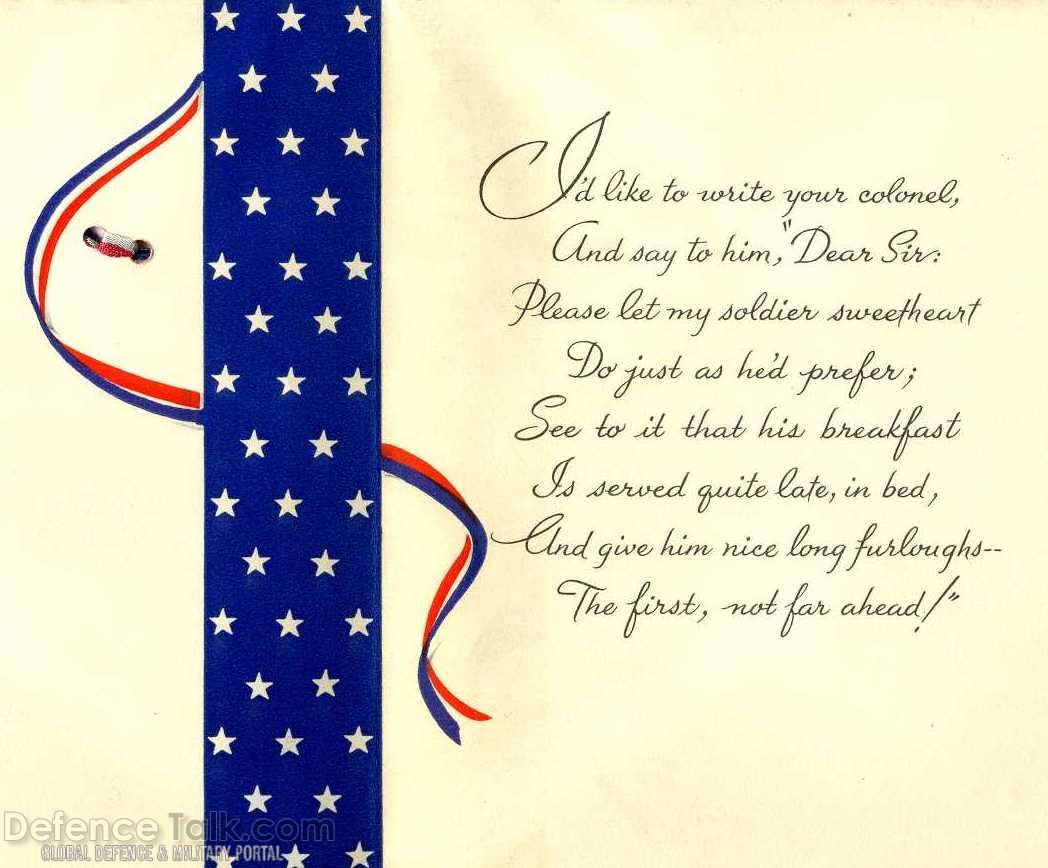 I'd like to write your colonel,
And say to him, "Dear Sir:
Please let my soldier sweetheart
Do just as he'd prefer;
See to it that his breakfast
Is served quite late, in bed,
And give him nice long furloughs--
The first, not far ahead!"
DefenceTalk.com
GLOBAL DEFENCE & MILITARY PORTAL